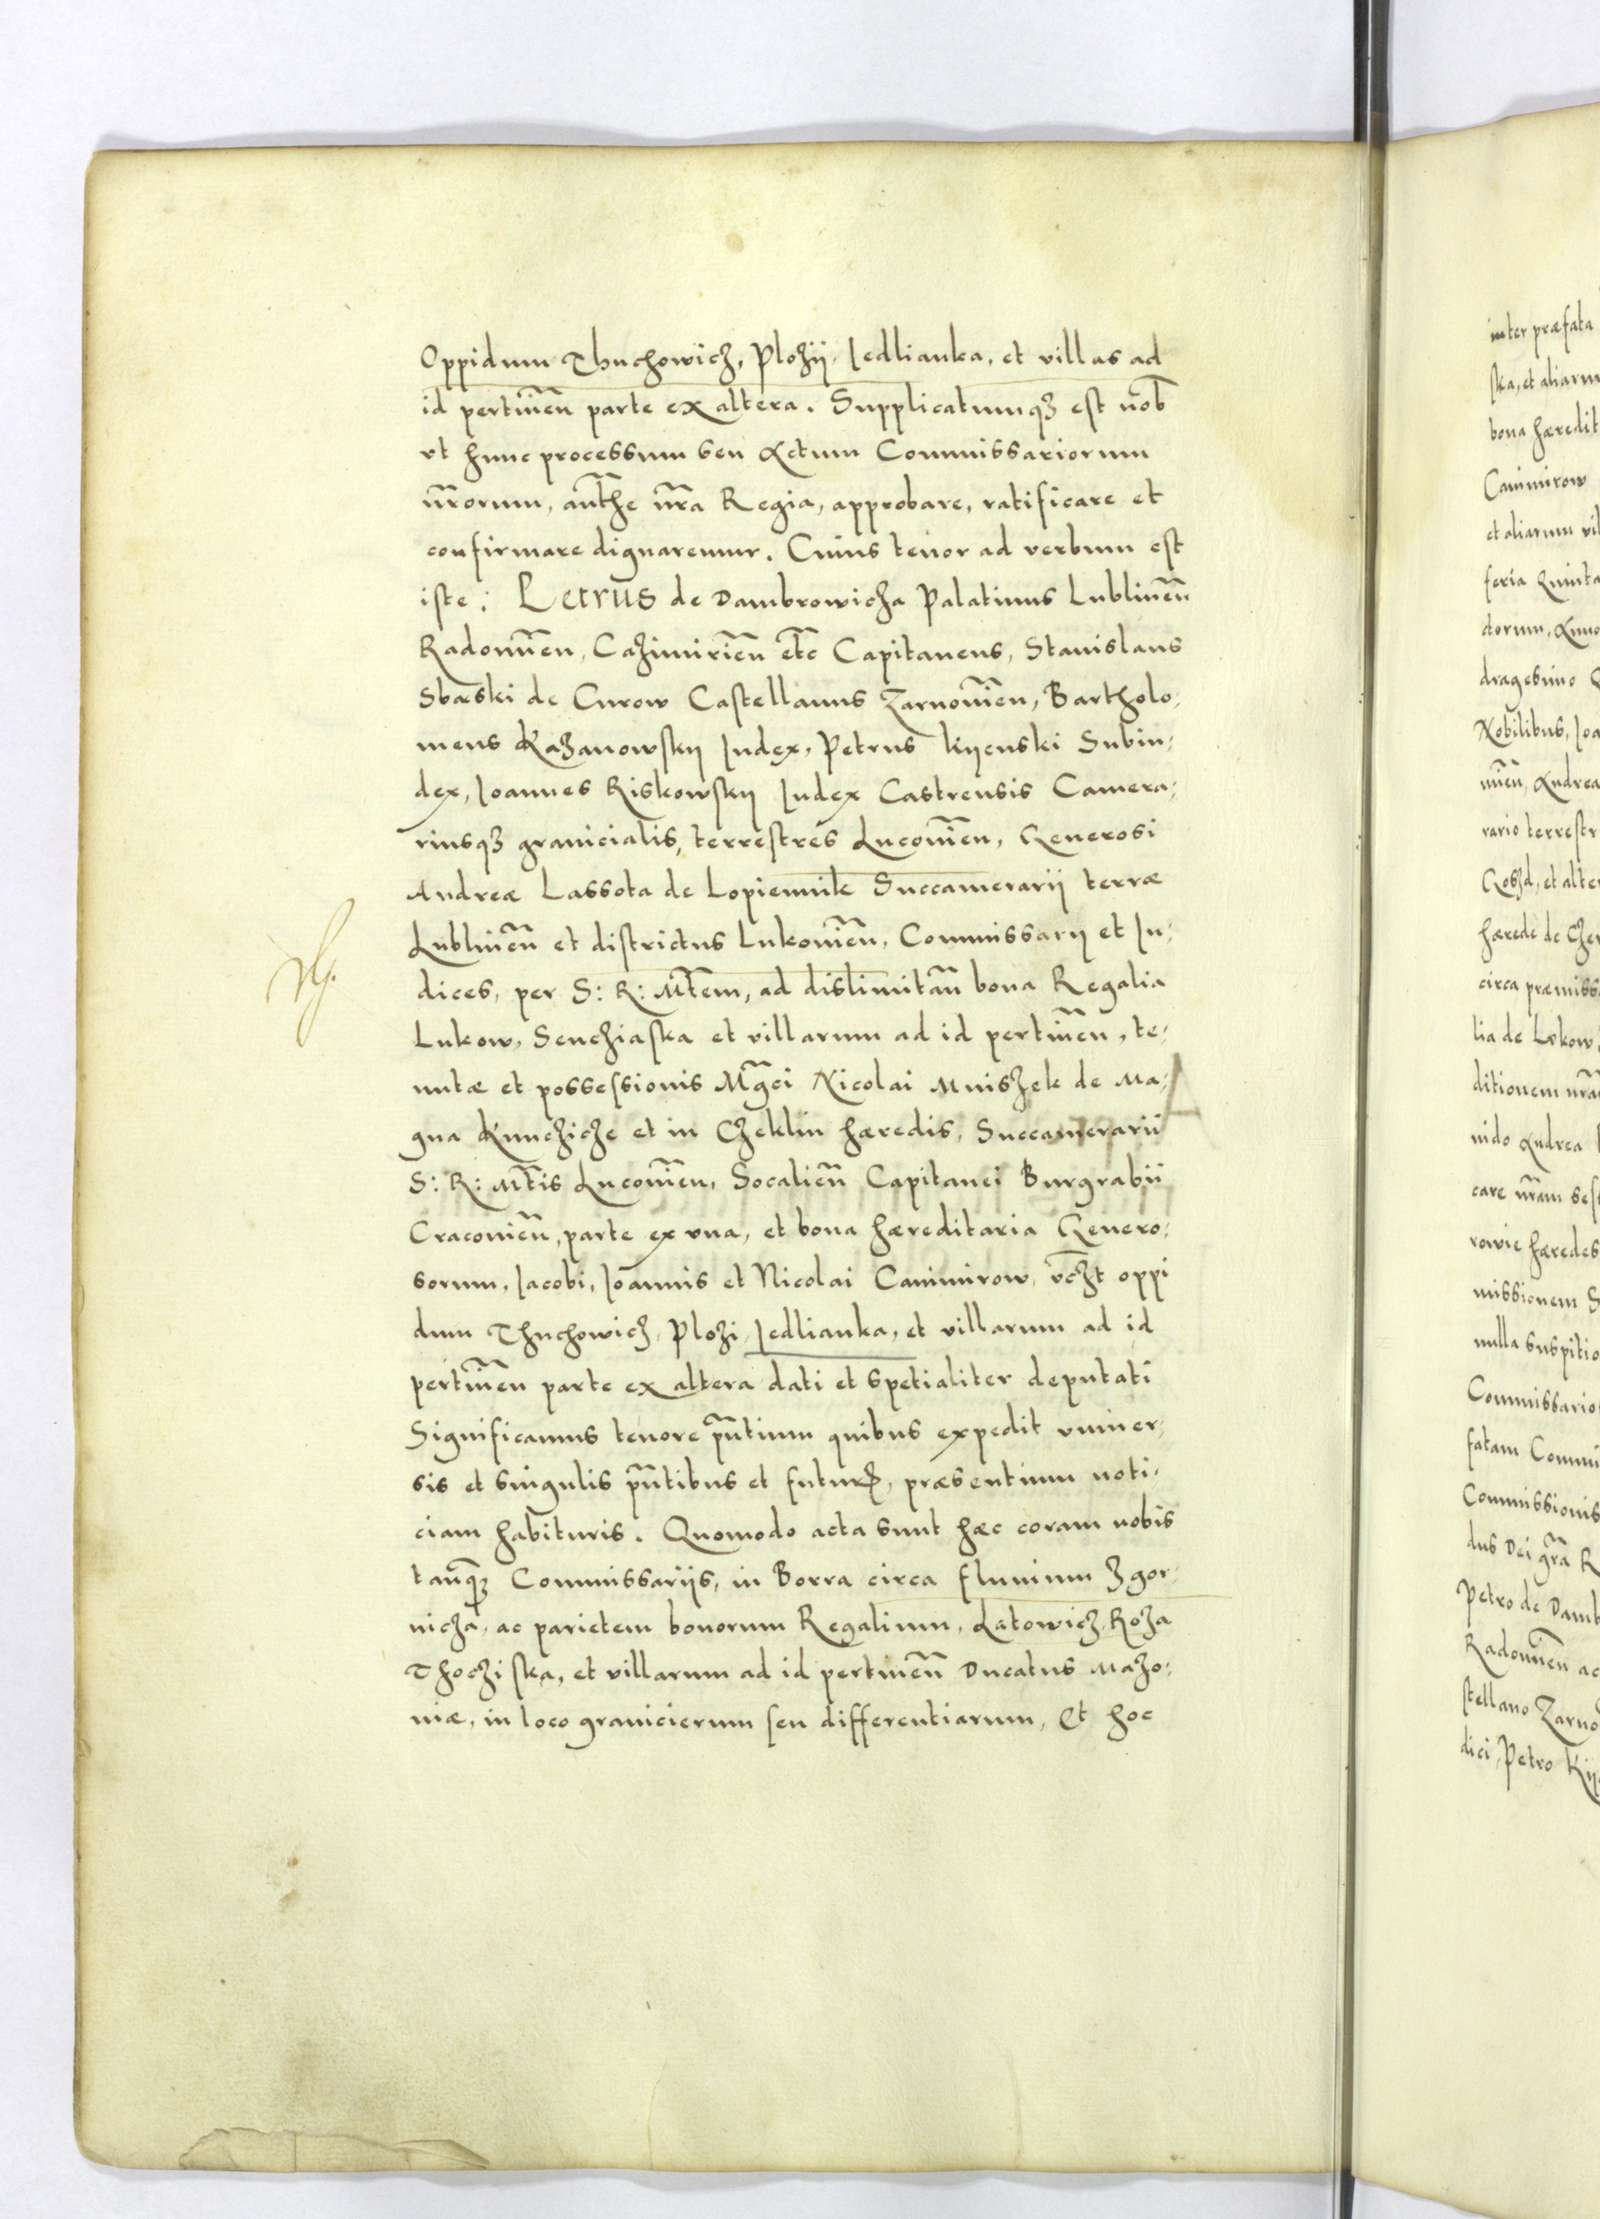 Oppidum Thuchowicz, Plozij, Iedlianka, et villas ad
id pertinen̄ parte ex altera. Supplicatumq̢ est nob̄
vt hunc processum seu Actum Commissariorum
nr̄orum, auth̄e nr̄a Regia, approbare, ratificare et
confirmare dignaremur. Cuius tenor ad verbum est
iste: Petrus de Dambrowicza Palatinus Lublinen̄
Radomien̄, Cazimirien̄ etc̄ Capitaneus, Stanislaus
Sbæski de Curow Castellanus Zarnowien̄, Bartholo:
meus Kazanowskij Iudex, Petrus Kijenski Subiu:
dex, Ioannes Riskowskij Iudex Castrensis Camera:
riusq̢ granicialis, terrestres Lucowien̄, Generosi
Andreæ Lassota de Lopiennik Succamerarii terræ
Lublinen̄ et districtus Lukowien̄, Commissarij et Iu:
dices, per S: R: Mt̄em, ad dislimitan̄ bona Regalia
Lukow, Senchiaska et villarum ad id pertinen̄, te:
nutæ et possessionis Mgc̄i Nicolai Mniszek de Ma:
gna Kunchiche et in Czeklin hæredis, Succamerarii
S: R: Mt̄is Lucowien̄, Socalien̄ Capitanei Burgrabii
Cracovien̄, parte ex vna, et bona hæreditaria Genero:
sorum, Iacobi, Ioannis et Nicolai Canimirow, vc̄zt oppi
dum Thuchowicz, Plozi, Iedlianka, et villarum ad id
pertinen̄ parte ex altera dati et spetialiter deputati
Significamus tenore pn̄tium quibus expedit vniuer:
sis et singulis pn̄tibus et futur̢, præsentium noti:
ciam habituris. Quomodo acta sunt hæc coram nobis
tanq̢ Commissariis, in Borra circa fluuium Zgor:
nicza, ac parietem bonorum Regalium, Latowicz, Roza
Thoczi ska, et villarum ad id pertinen̄ Ducatus Mazo:
uiæ, in loco granicierum seu differentiarum, Et hoc
inter præfata
ska, et aliarum
bona hæredit
Canimirow
et aliarum vil
feria Quinta
dorum, Anno
dragesimo
Nobilibus, Ioa
Andrea
rario terrestr
et alter
hærede de Czer
circa præmiss
lia de Lukow,
ditionem nr̄a
uido Andrea
care nr̄am
rowie hæredes
missionem S
nulla suspitio
Commissario
fatam Commi
Commissionis
dus Dei gr̄a R
Petro de Damb
Radomien̄ ac
stellano Zarno
dici, Petro Kij